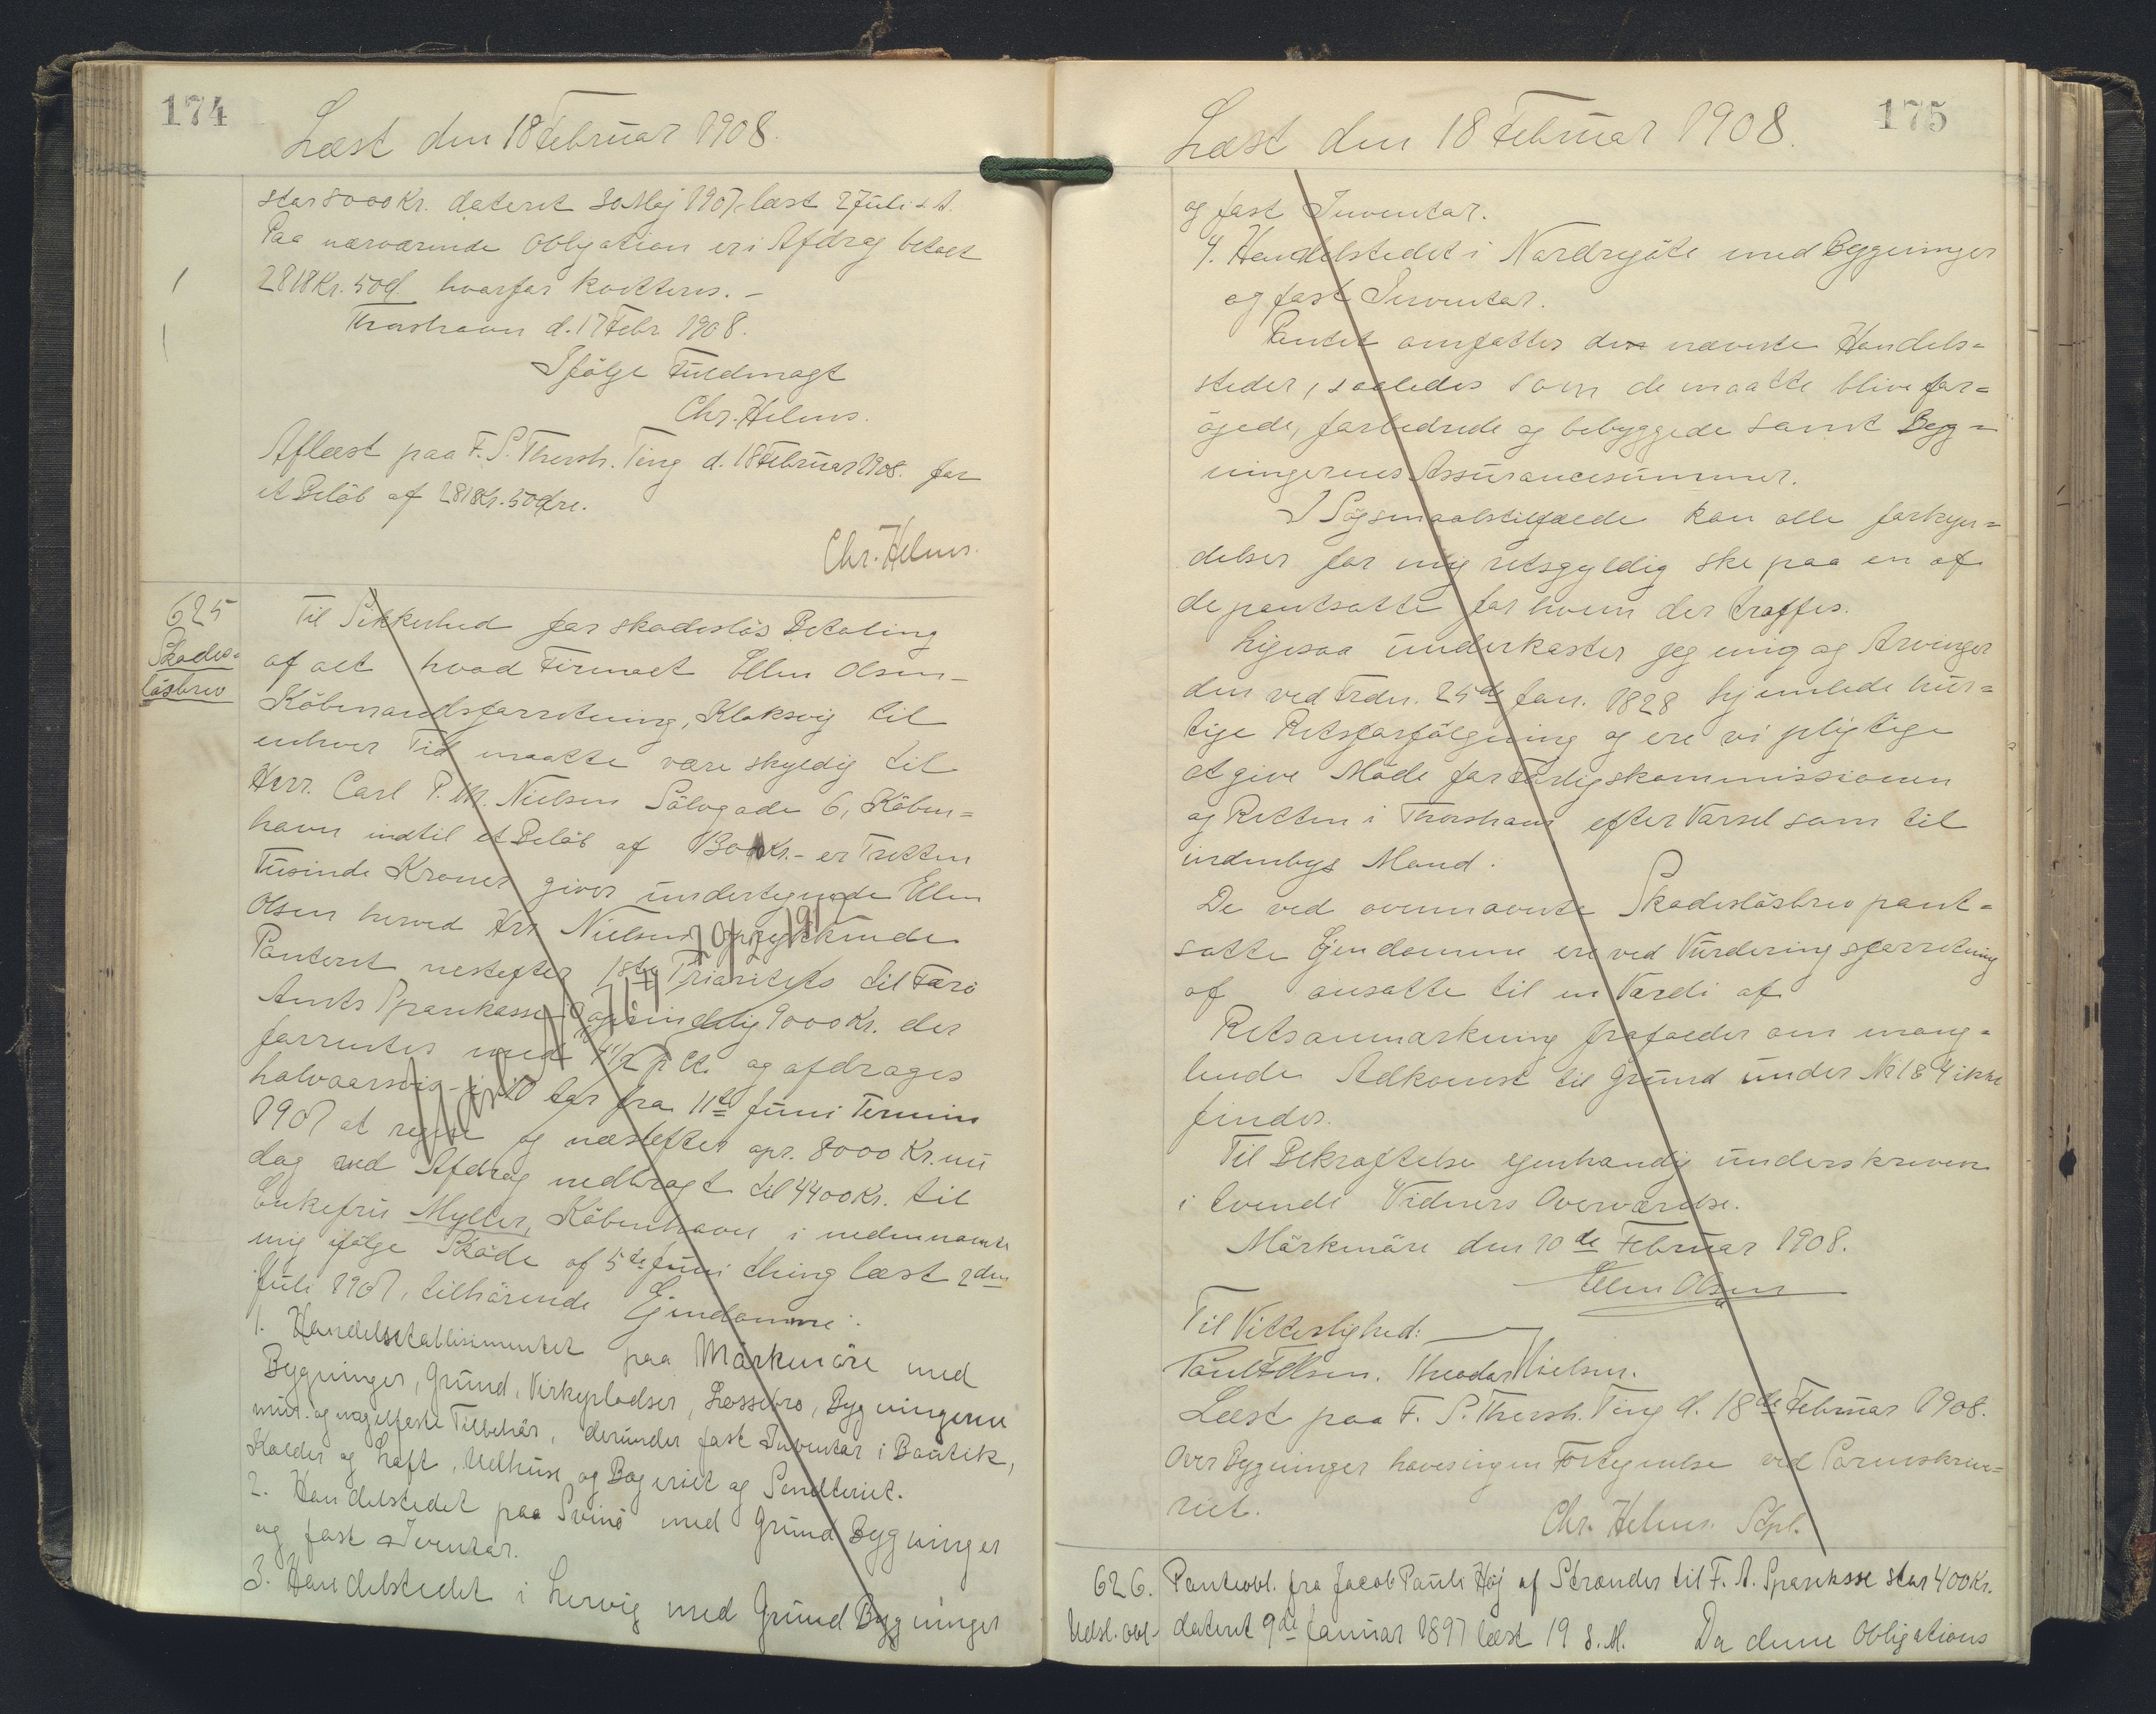 174
Læst den 18 Februar 1908.
stor 8000 Kr. dateret 30 Maj 1907, læst 2 Juli s. A.
Paa nærværende Obligation er i Afdrag betalt
2818 Kr. 50 Ø hvorfor kvitteres. -
Thorshavn d. 17 Febr 1908.
Ifølge Fuldmagt
Chr. Helms.
Aflæst paa F. S. Thorsh. Ting d. 18 Februar 1908. for
et Beløb af 2818 Kr. 50 Øre.
Chr. Helms.
625
Skades=
løsbrev
Til Sikkerhed for skadesløs Betaling
af alt hvad Firmaet Ellen Olsen -
Köbmandsforretning, Klaksvig til
enhver Tid maatte være skyldig til
Herr. Carl P. M. Nielsen Sölvgade 6, Köben=
havn indtil et Belöb af Kr. - er Tretten
Tusinde Kroner giver undertegnede Ellen
Olsen herved Hrr Nielsen oprykkende
Panteret næstefter 1ste Prioritets til Færö
Amts Sparekasse oprindelig 9000 Kr. der
forrentes med 4 1/2 p Ct. og afdrages
halvaarsvis i 10 Aar fra 11te Juni Termin
1907 at regne og næstefter opr. 8000 Kr. nu
dag ved Afdrag nedbragt til 4400 Kr. til
Enkefru Myller, Köbenhavn i nedennævnte
mig ifølge Sköde af 5te Juni thinglæst 2den
Juli 1907, tilhörende Ejendomme:
1. Handelsetablisementet paa Mörkenöre med
Bygninger, Grund, Virkepladser, Lossebro, Bygningerne
mur- og nagelfaste Tilbehör, derunder fast Inventar i Boutik,
Kælder og Loft, Udhuse og Bageriet og Senelteriet.
2. Handelstedet paa Svinö med Grund Bygninger
og fast Iventar.
3. Handelstedet i Lervig med Grund Bygninger
175
Læst den 18 Februar 1908.
og fast Inventar.
4. Handelstedet i Nordregöte med Bygninger
og fast Inventar.
Pantet omfatter de nævnte Handels=
steder, saaledes som de maatte blive for=
ögede, forbedrede og bebyggede samt Byg=
ningernes Assurancesummer.
I Søgsmaalstilfælde kan alle forkyn=
delser for mig retsgyldig ske paa en af
de pantsatte for hvem der træffes.
Ligesaa underkaster jeg mig og Arvinger
den ved Frdn. 25de Jan. 1828 hjemlede hur=
tige Retsforfölgning og ere vi pligtige
at give Möde for Forligskommissionen
og Retten i Thorshavn efter Varsel som til
indenbys Mand.
De ved ovennævnte Skadesløsbrev pant=
satte Ejendomme ere ved Vurderingsforretning
af ansatte til en Værdi af
Retsanmærkning frafalder om mang=
lende Adkomst til Grund under No 1 & 4 ikke
findes.
Til Bekræftelse egenhændig underskreven
i tvende Vidners Overværelse.
Mörkenöre den 10de Februar 1908.
Ellen Olsen
Til Vitterlighed:
Poul F Olsen. Theodor Nielsen.
Læst paa F. S. Thorsh. Ting d. 18de Februar 1908.
Over Bygninger haves ingen Fortegnelse ved Sorenskrive=
riet.
Chr. Helms. Cst.
626.
Udsl. obl.
Panteobl. fra Jacob Pauli Höj af Strænder til F. A. Sparekasse stor 400 Kr.
dateret 9de Januar 1897 læst 19 s. M. Da denne Obligations